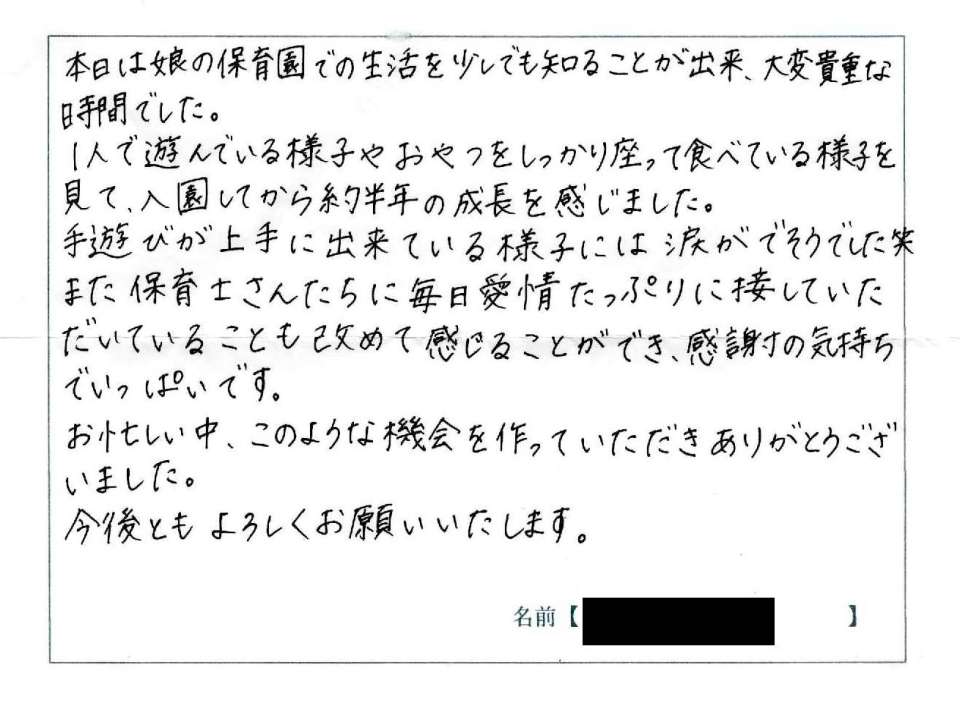 本日は娘の保育園での生活を少しでも知ることが出来、大変貴重な
時間でした。
1人で遊んでいる様子やおやつをしっかり座って食べている様子を
見て、入園してから約半年の成長を感じました。
手遊びが上手に出来ている様子には涙がでそうでした笑
また保育士さんたちに毎日愛情たっぷりに接していた
だいていることも改めて感じることができ、感謝の気持ち
でいっぱいです。
お忙しい中、このような機会を作っていただきありがとうござ
いました。
今後ともよろしくお願いいたします。
名前【 】